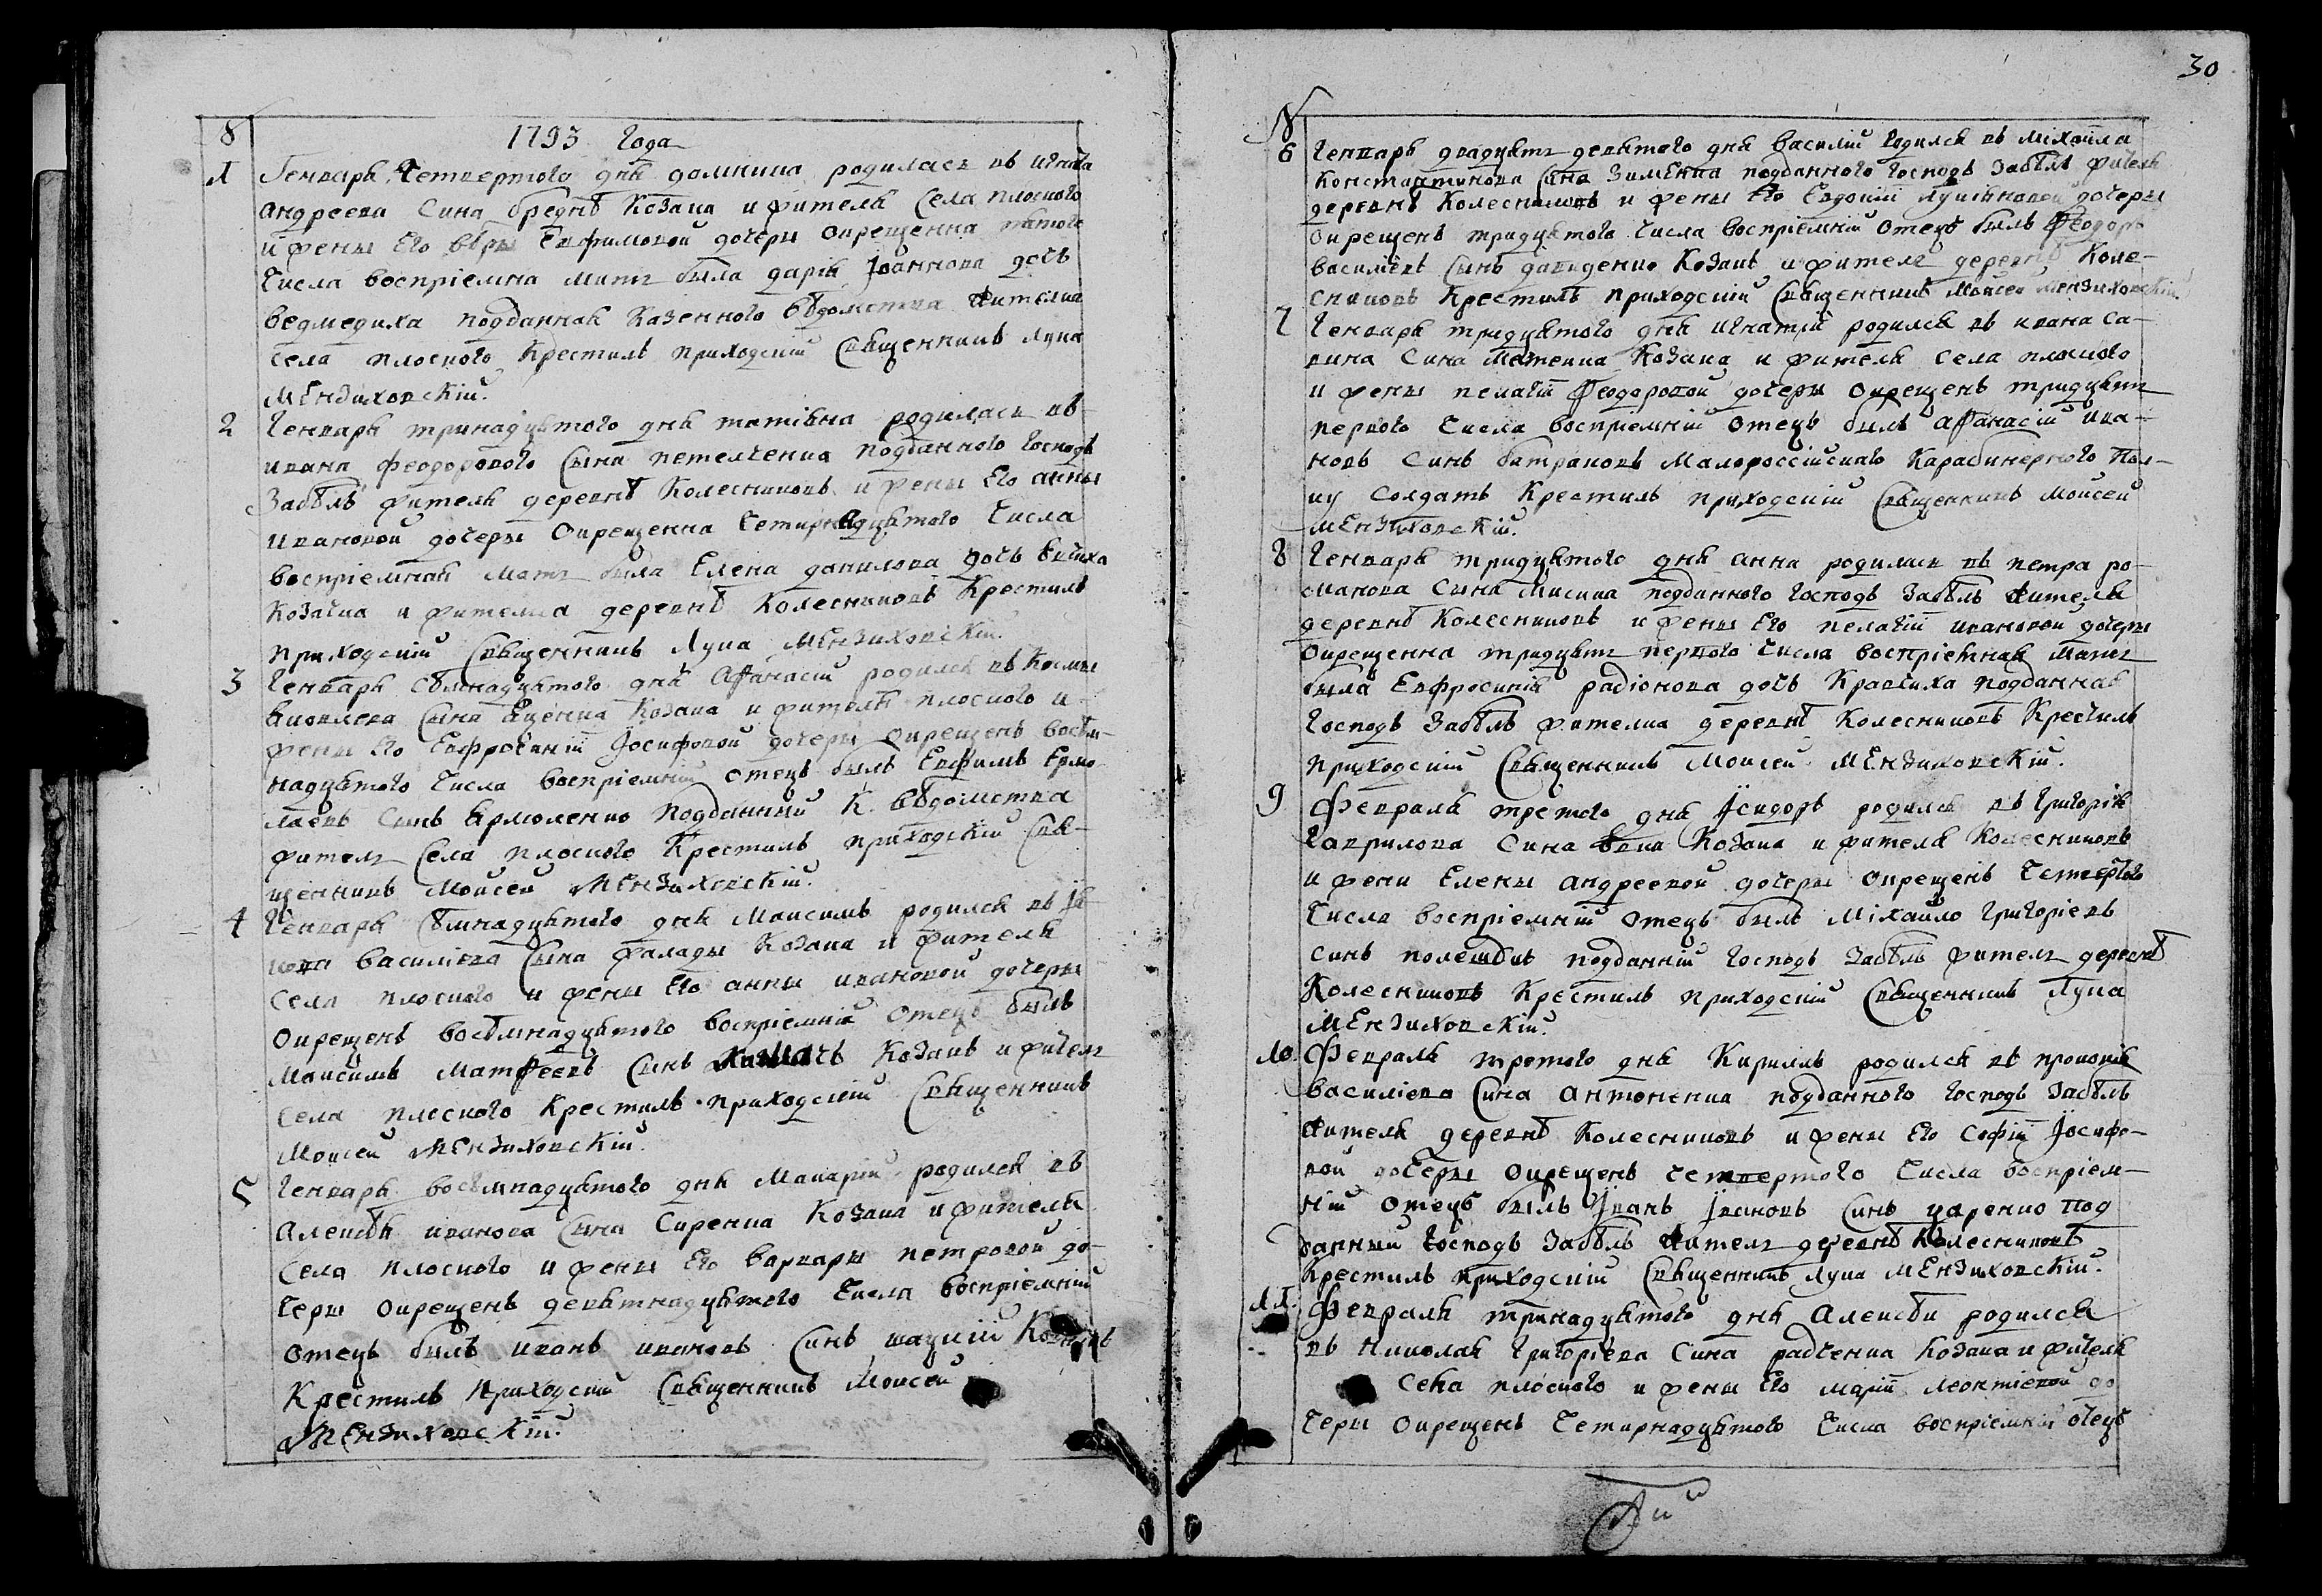 30
№ 1793 года
1 Генваря четвертого дня домнина родилась въ игната
андреева сина бреднѣ козака и жителя села плоского
и жены его вѣры Евфимовой дочеры окрещенна пятого
числа воспріемна мать была дарія Іоаннова дочь
ведмедиха подданная казенного вѣдомства жителка
села плоского крестилъ приходскій священникъ лука
Мензиховскій.
2 Генваря тринадцятого дня татіяна родилась въ
ивана феодорового сына петелченка подданного господъ
Забѣлъ жителя деревнѣ Колесниковъ и жены его анны
ивановой дочеры окрещенна четирнадцятого числа
воспріемная мать была Елена данилова дочь
козачка и жителка деревнѣ Колесниковъ крестилъ
приходскій священникъ лука Мензиховскій.
3 Генваря сѣмнадцятого дня Афанасій родился въ Космы
яковлева сына яценка козака и жителя плоского и
жены его Евфросиніи Іосифовой дочеры окрещенъ восѣм-
надцятого числа воспріемній отецъ былъ Евфимъ Ермо-
лаевъ сынъ Ярмоленко подданный К. вѣдомства
житель села плоского Крестилъ приходскій свя-
щенникъ Моисей Мензиховскій.
4 Генваря сѣмнадцятого дня Максимъ родился въ Іа-
кова василіева сына фалады козака и жителя
села плоского и жены его анны ивановой дочеры
окрещенъ восѣмнадцятого воспріемній отецъ былъ
Максимъ Матфеевъ сынъ козакъ и житель
села плоского Крестилъ приходскій священникъ
Моисей Мензиховскій.
5 Генваря восѣмнадцятого дня Макарій родился въ
алексѣя иванова сына Сиренка козака и жителя
села плоского и жены его варвары петровой до-
черы окрещенъ девятнадцятого числа воспріемній
отецъ былъ иванъ ивановъ синъ козакъ
Крестилъ приходскій священникъ Моисей
Мензиховскій.
№
6 Генваря двадцять девятого дня василій родился въ Міхаила
Константинова сина Зименка подданного господъ Забѣлъ жителя
деревнѣ Колесниковъ и жены его Евдокіи лукіяновой дочеры
окрещенъ тридцятого числа воспріемній отецъ былъ Феодоръ
василіевъ сынъ давиденко козакъ и житель деревнѣ Коле-
сниковъ Крестилъ приходскій священникъ Моисей Мензиховскій.
7 Генваря тридцятого дня игнатій родился въ ивана са-
вина сина козака и жителя села плоского
и жены пелагіи Феодоровой дочеры окрещенъ тридцять
первого числа воспріемній отецъ былъ афанасій ива-
новъ синъ батраковъ Малороссійскаго Карабинерного Пол-
ку солдатъ Крестилъ приходскій священникъ Моисей
Мензиховскій.
8 Генваря тридцятого дня анна родилась въ петра ро-
манова сына Мисика подданного господъ Забѣлъ жителя
деревнѣ Колесниковъ и жены его пелагіи ивановой дочеры
окрещенна тридцять первого числа воспріемная мать
была Евфросинія радіонова дочь Кравчиха подданная
господъ Забѣлъ жителка деревнѣ Колесниковъ Крестилъ
приходскій священникъ Моисей Мензиховскій.
9 Февраля третого дня Ісидоръ родился въ Григорія
гаврилова сина козака и жителя Колесниковъ
и жени Елены андреевой дочеры окрещенъ четвертого
числа воспріемній отецъ былъ Міхайло Григоріевъ
синъ подданній господъ Забѣлъ житель деревнѣ
Колесниковъ Крестилъ приходскій священникъ Лука
Мензиховскій.
10 Февраля третого дня Кирилъ родился въ прокопія
василіева сина антоненка подданного господъ Забѣлъ
жителя деревнѣ Колесниковъ и жены его софіи Іосифо-
вой дочеры окрещенъ четвертого числа воспріем-
ній отецъ былъ Іванъ Івановъ синъ царенко под
данный господъ Забѣлъ житель деревнѣ Колесниковъ
Крестилъ приходскій священникъ лука Мензиховскій.
11. Февраля тринадцятого дня алексѣй родился
въ Николая Григоріева сина радченка козака и жителя
села плоского и жены его маріи леонтіевой до
черы окрещенъ четирнадцятого числа воспріемній отецъ